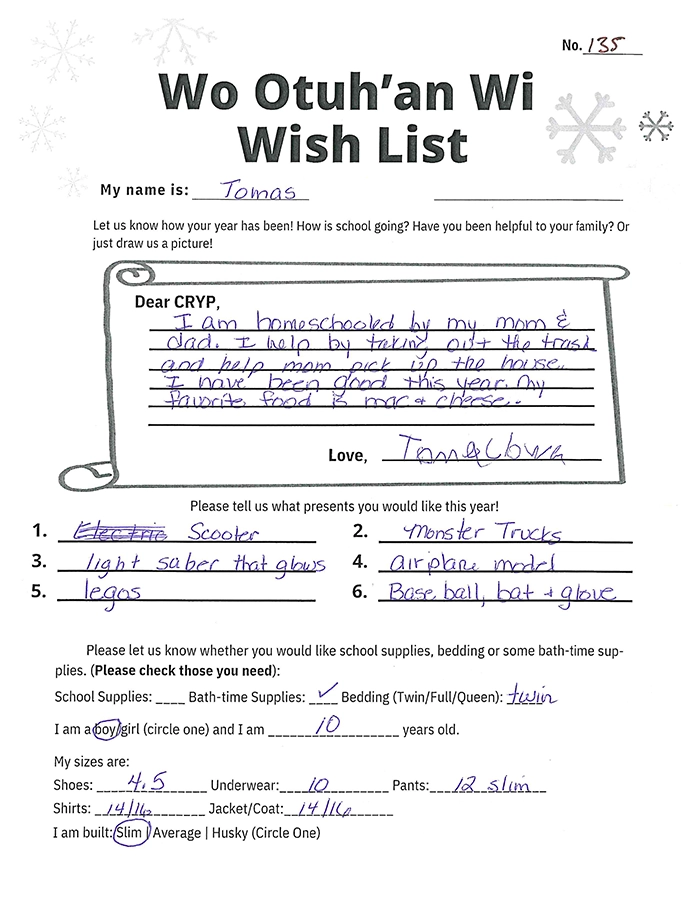 No. 135
Wo Otuh'an Wi
Wish List
My name is: Tomas
Let us know how your year has been! How is school going? Have you been helpful to your family? Or
just draw us a picture!
Dear CRYP,
I am homeschooled by my mom &
dad. I help by taking out the trash
and help mom pick up the house.
I have been good this year. My
favorite food is mac + cheese.
Love,
Please tell us what presents you would like this year!
1. Electric Scooter
2. Monster Trucks
3. light saber that glows
4. airplane model
5. legos
6. Base ball, bat + glove
Please let us know whether you would like school supplies, bedding or some bath-time sup-
plies. (Please check those you need):
School Supplies: ____ Bath-time Supplies: ✓ Bedding (Twin/Full/Queen): twin
I am a boy/girl (circle one) and I am 10 years old.
My sizes are:
Shoes: 4.5 Underwear: 10 Pants: 12 slim
Shirts: 14/16 Jacket/Coat: 14/16
I am built: Slim | Average | Husky (Circle One)